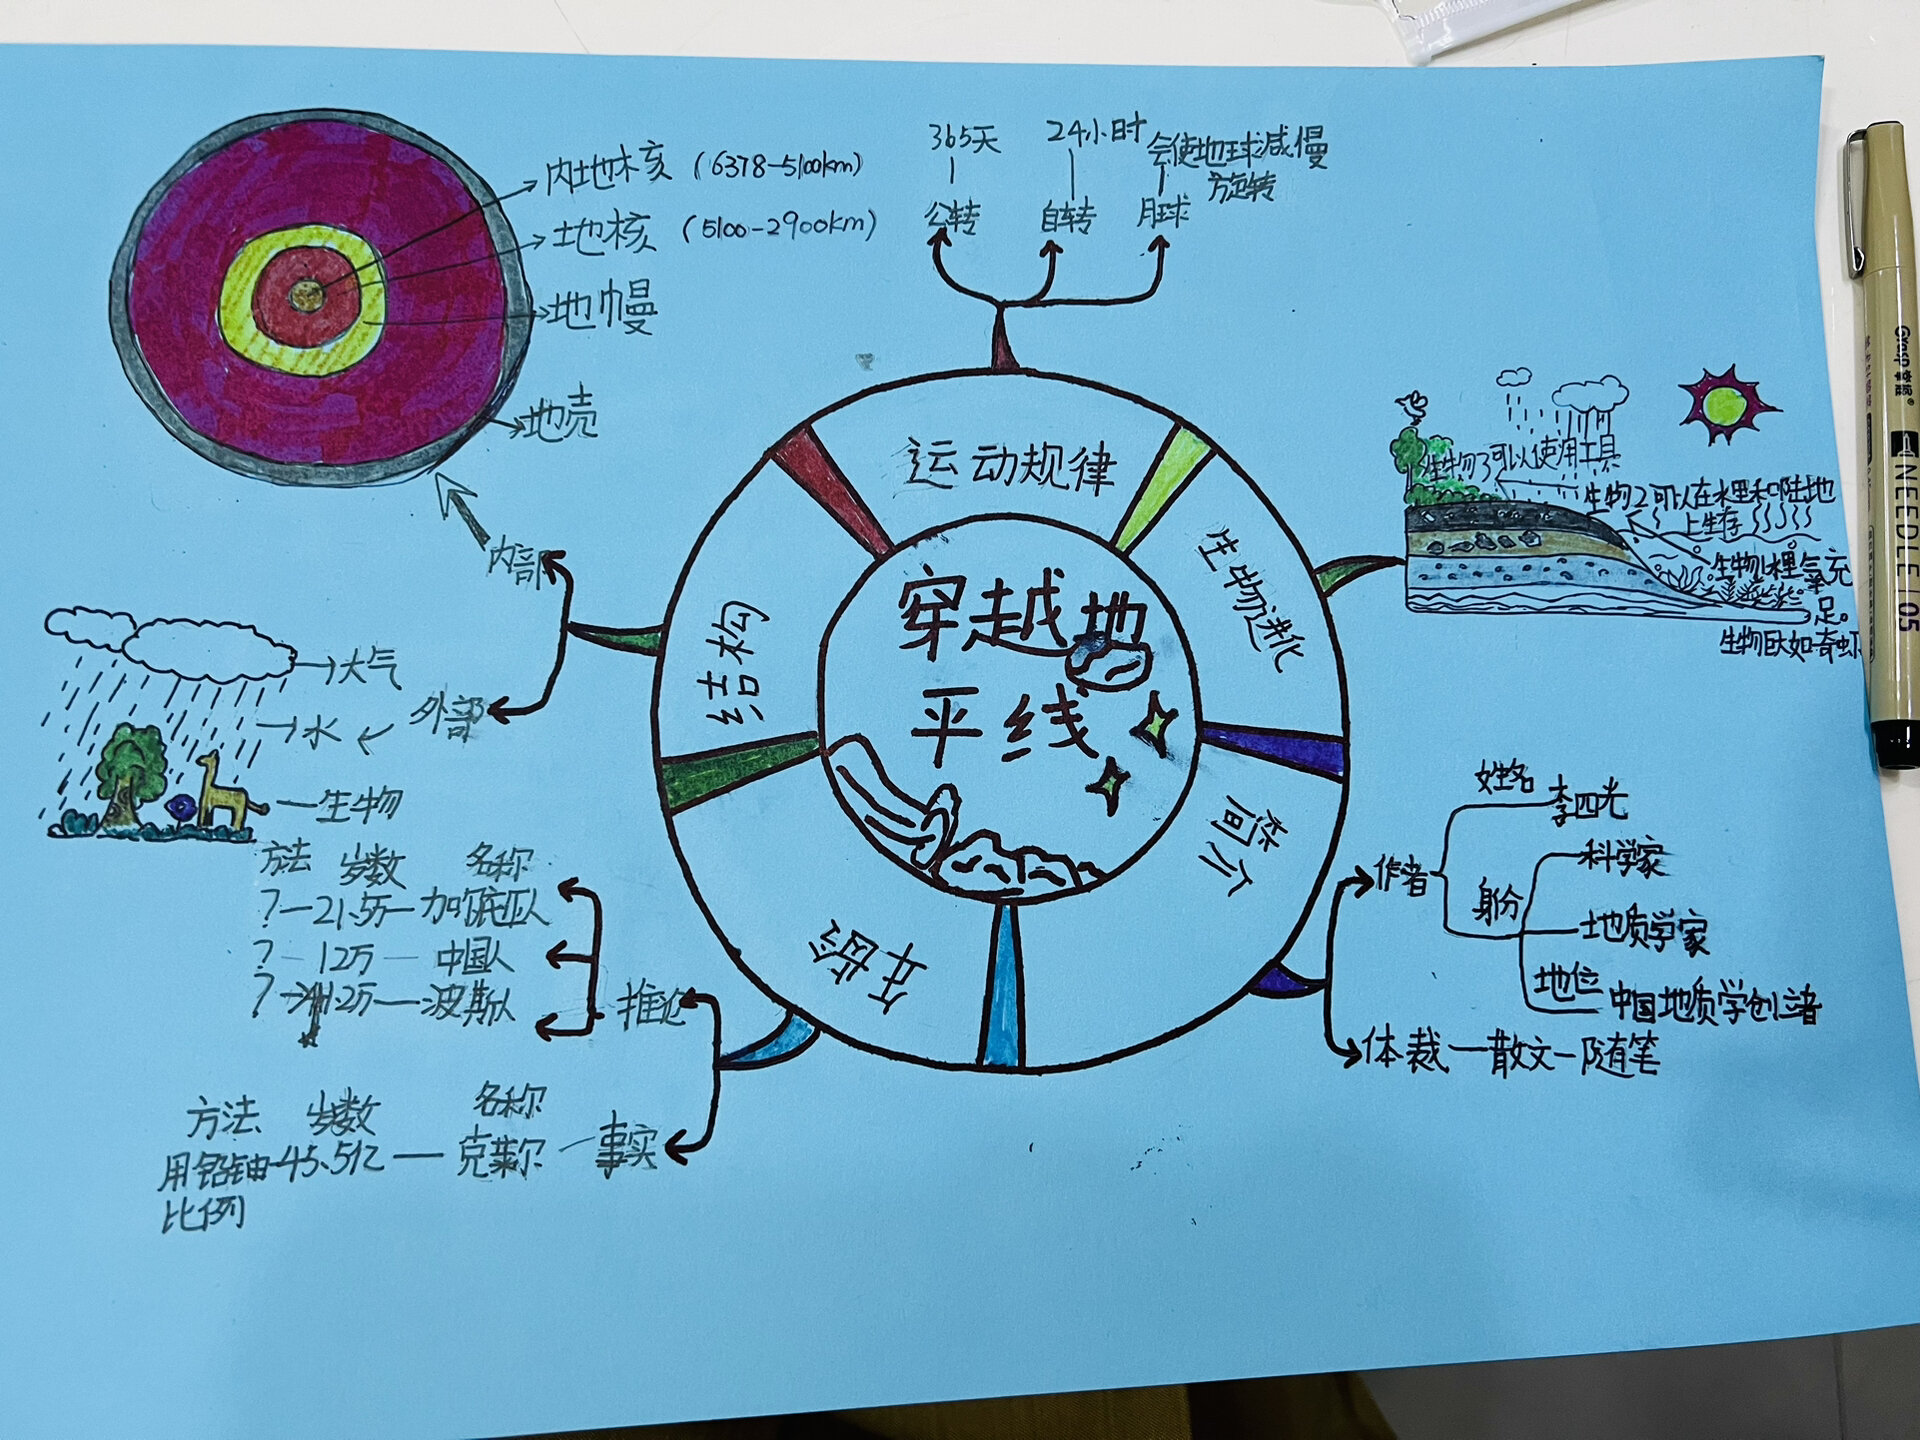 穿越地
平线
运动规律
365天
24小时
会使地球减慢
旋转
公转
自转
月球
生物进化
生物3可以使用工具
生物2可以在水里和陆地
上生存
生物1水里氧充
足。
简介
作者
姓名
李四光
身分
科学家
地质学家
地位
中国地质学创立者
体裁一散文一随笔
年龄
推论
方法 岁数 名称
?—21.5万—加
?—12万—中国人
波斯人
事实
方法 岁数 名称
用铅铀 45.5亿 — 克莱尔
比例
结构
内部
内地核 (6378-5100km)
地核 (5100-2900km)
地幔
地壳
外部
大气
水
生物
Grasp 掌握®
NEEDLE 05